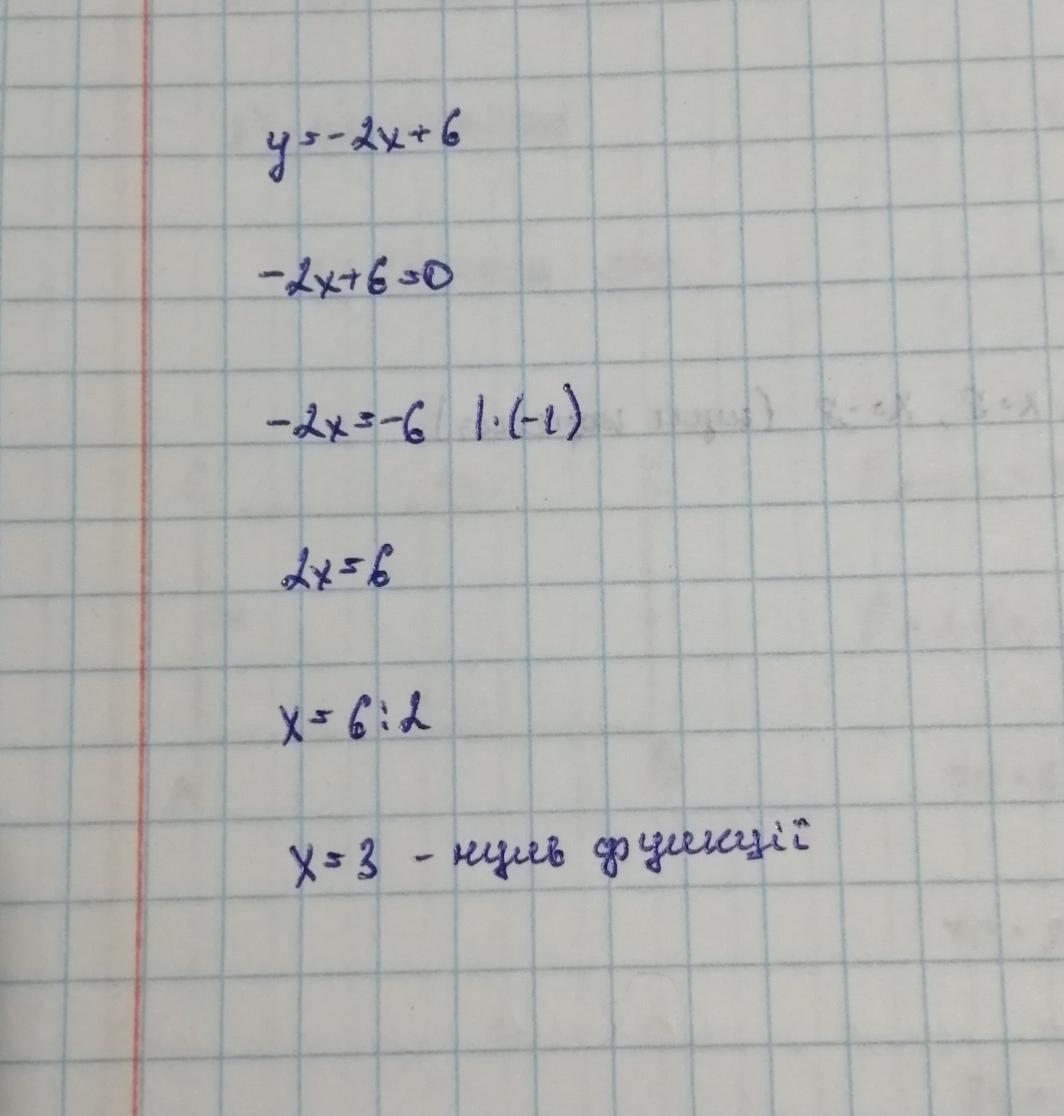 y=-2x+6
-2x+6=0
-2x=-6 |·(-1)
2x=6
x=6:2
x=3 - нуль функції